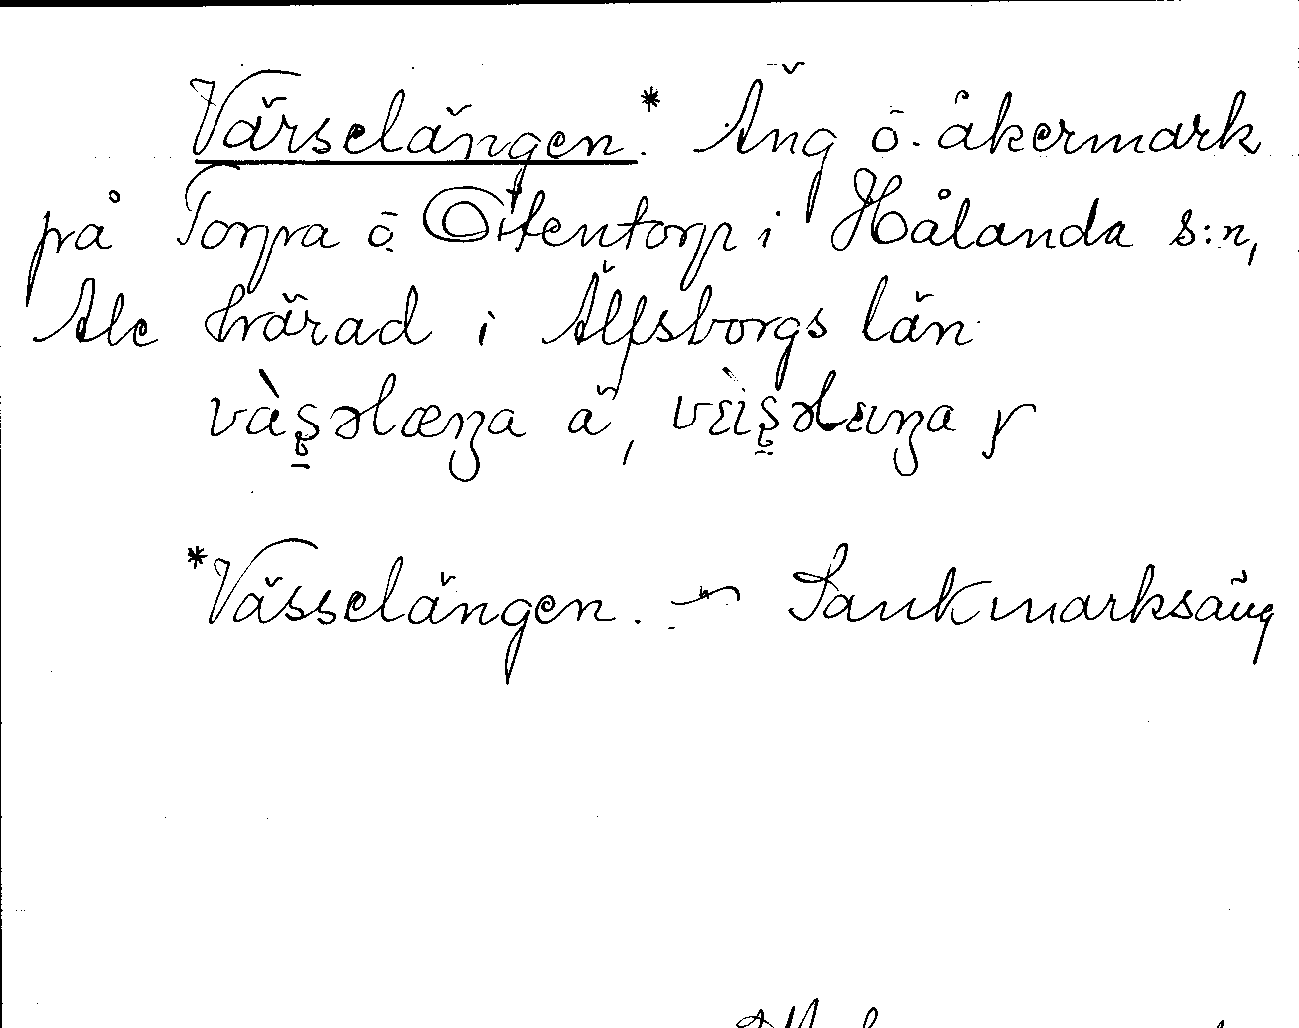 Värselängen.* Äng ō. åkermark
på Torpa ō. Ottentorp i Hålanda s:n,
Ale härad i Älfsborgs län
*Vässelängen. — Sankmarksäng